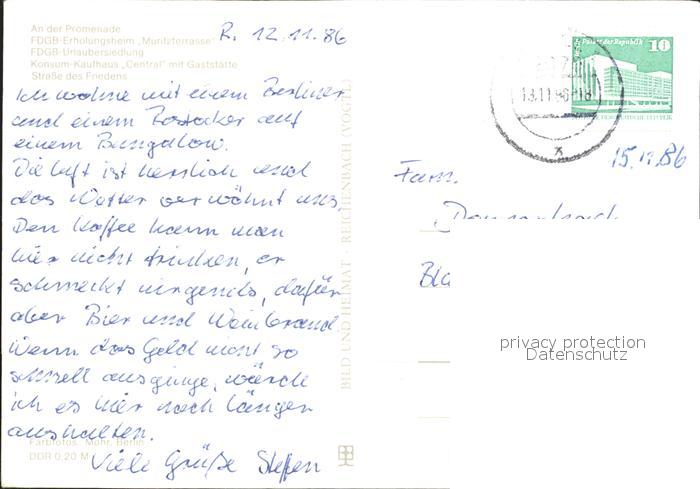 An der Promenade
FDGB-Erholungsheim „Müritzterrasse"
FDGB-Urlaubersiedlung
Konsum-Kaufhaus „Central" mit Gaststätte
Straße des Friedens
R. 12.11.86
Ich wohne mit einem Berliner
und einem Rostocker auf
einem Bungalow.
Die Luft ist herrlich und
das Wetter verwöhnt uns.
Den Kaffee kann man
hier nicht trinken, er
schmeckt nirgends, dafür
aber Bier und Weinbrand.
Wenn das Geld nicht so
schnell ausginge, würde
ich es hier noch länger
aushalten.
Viele Grüße Steffen
Farbfotos: Mohr, Berlin
DDR 0,20 M
BILD UND HEIMAT · REICHENBACH (VOGTL)
Palast der Republik
10
13.11.86
15.11.86
Fam.
privacy protection
Datenschutz